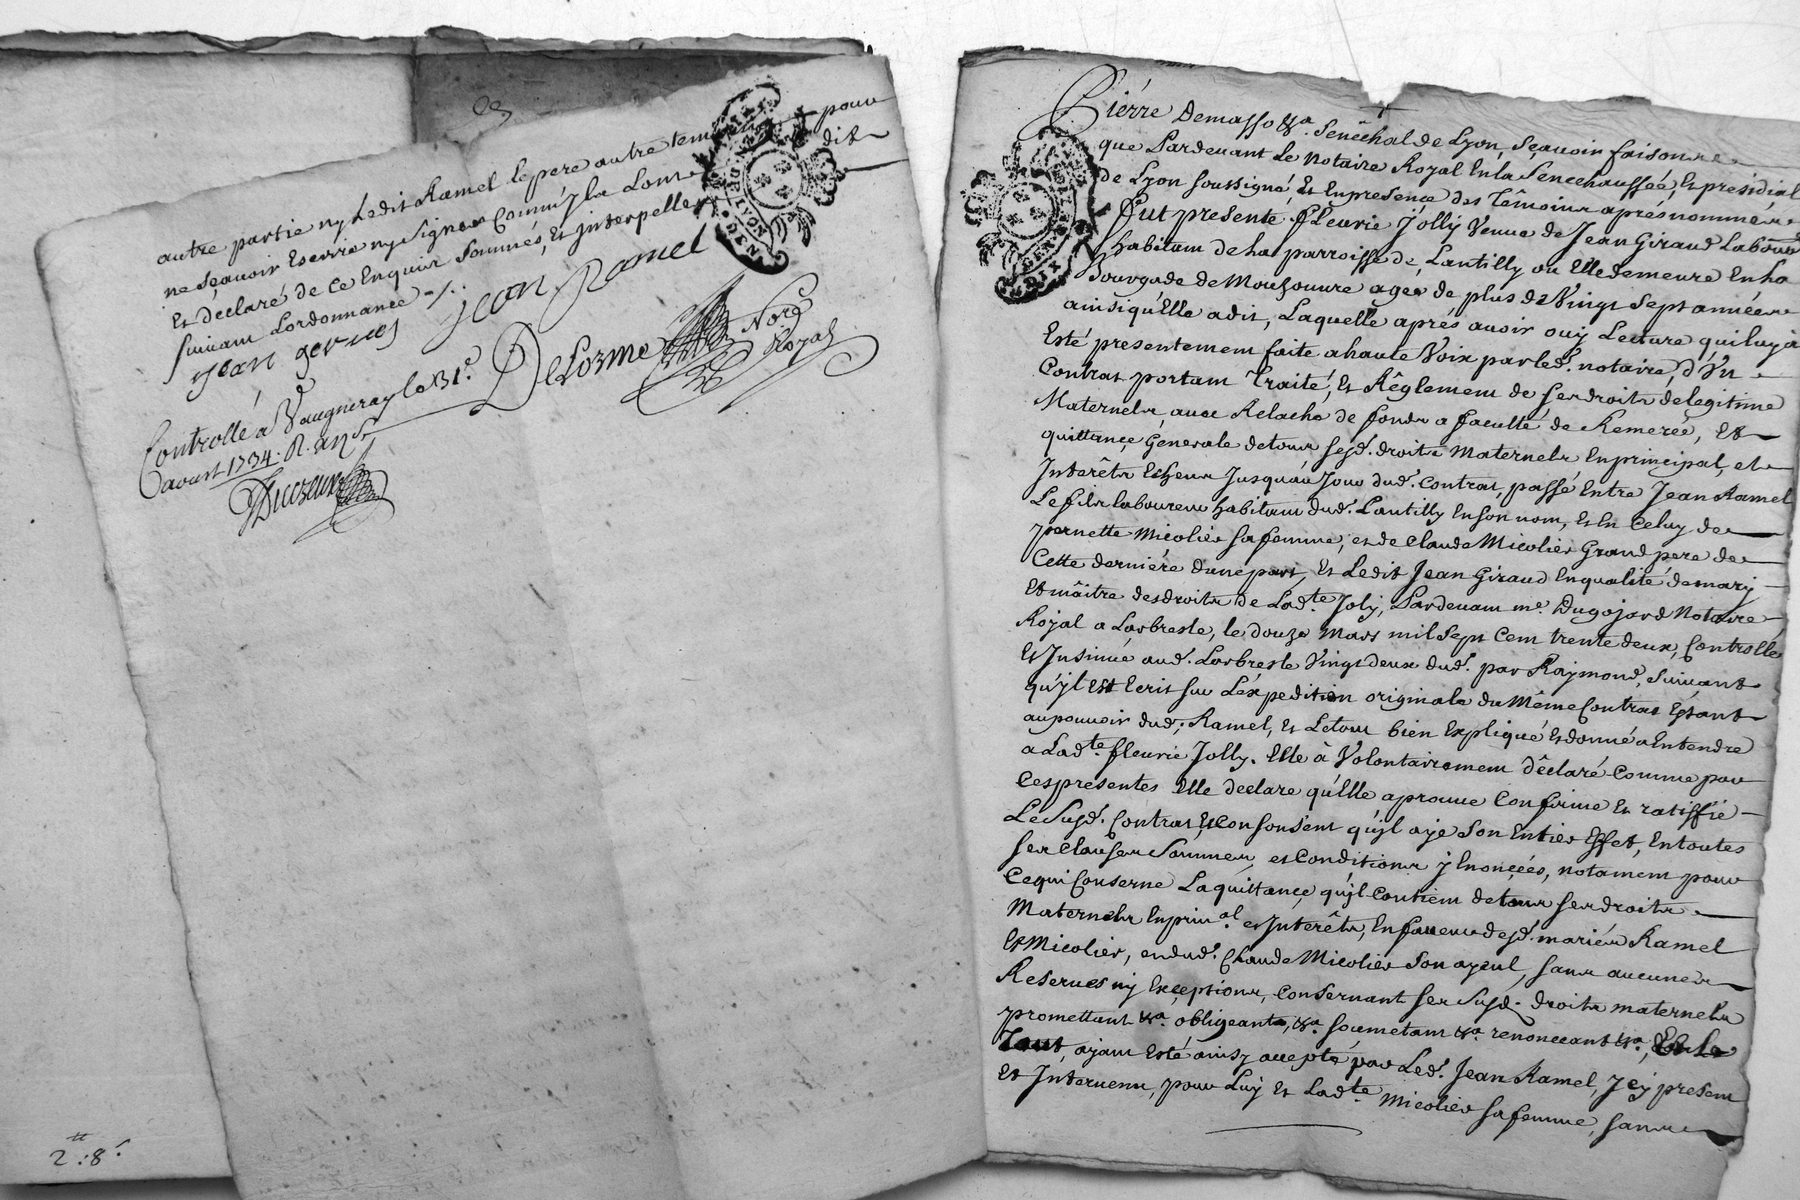 autre partie ny Ledit Ramel le pere autre tem pour
ne sçauoir Escrire ny signer Comm'jl a dit
Et declaré de ce Enquis sommés, Et jnterpellés
suiuant Lordonnance -/.
jean geruas jean Ramel
DeLorme Nore
Royal
Controllé á Vaugneray le 31e.
aoust 1734. R.
2 : 8
GEN DE LYON
Piérre Demasso &a. Senêchal de Lyon, Sçauoir faisons
que Pardeuant Le Notaire Royal En la Senechaussée, Et présidial
de Lyon soussigné, Et En presence des Têmoins aprés nommés
fut presente fleurie Jolly Veuue de Jean Giraud Laboureur
habitam de ha parroisse de Lantilly ou Elle demeure En ha
Bourgade de Mouzouure agee de plus de Vingt sept années
ainsi qu'Elle a dit, Laquelle aprés auoir ouy Lecture qui luy à
Esté presentement faite a haute Voix par led. notaire, d'Vn
Contrat portant Traité, Et Rêglement de ses droits de legitime
Maternels, auec Relache de fonds a faculté de Remerée, Et
quittançe Generale de tous sesd. droits Maternels En principal, et
Jnterêts Echeus Jusqu'au Jour dud. Contrat, passé Entre Jean Ramel
Le fils laboureur habitant dud. Lantilly En son nom, Et En Celuy de
pernette Micolier sa femme, et de Claude Micolier Grand pere de
Cette derniére d'une part, Et Ledit Jean Giraud En qualité de mary
Et mâitre des droits de Ladte. Joly, Pardeuant me. Dugojard Notaire
Royal a Larbresle, le douze Mars mil sept Cent trente deux, Controllé
Et Jnsinué aud. Larbresle Vingt deux dud. par Raymond, suiuant
qu'jl Est Ecrit sur L'éxpedition originale du Même Contrat Estant
au pouuoir dud. Ramel, Et Le tout bien Expliqué Et donné a Entendre
a Ladte. fleurie Jolly. Elle à Volontairement dêclaré Comme par
Ces presentes Elle declare qu'Elle aprouue Confirme Et ratiffie
Le susd. Contrat Et Consent qu'jl aye Son Entier Effet, En toutes
ses Clauses Sommes, et Conditions y Enonçées, notament pour
Ce qui Conserne La quittançe qu'jl Contient de tous ses droits
Maternels En prinal. et Jnterêts, En faueur desd. mariés Ramel
Et Micolier, et dud. Claude Micolier Son ayeul, sans aucunes
Reserues ny Exçeptions, Consernant ses Susd. droits maternels
promettant &a. obligeant, &a. soumetant &a. renonceant &a., Et Le
Tout, ayant Esté ainsy accepté par Led. Jean Ramel, Jcy present
Et Jnteruenu, pour Luy Et Ladte. Micolier sa femme, sans